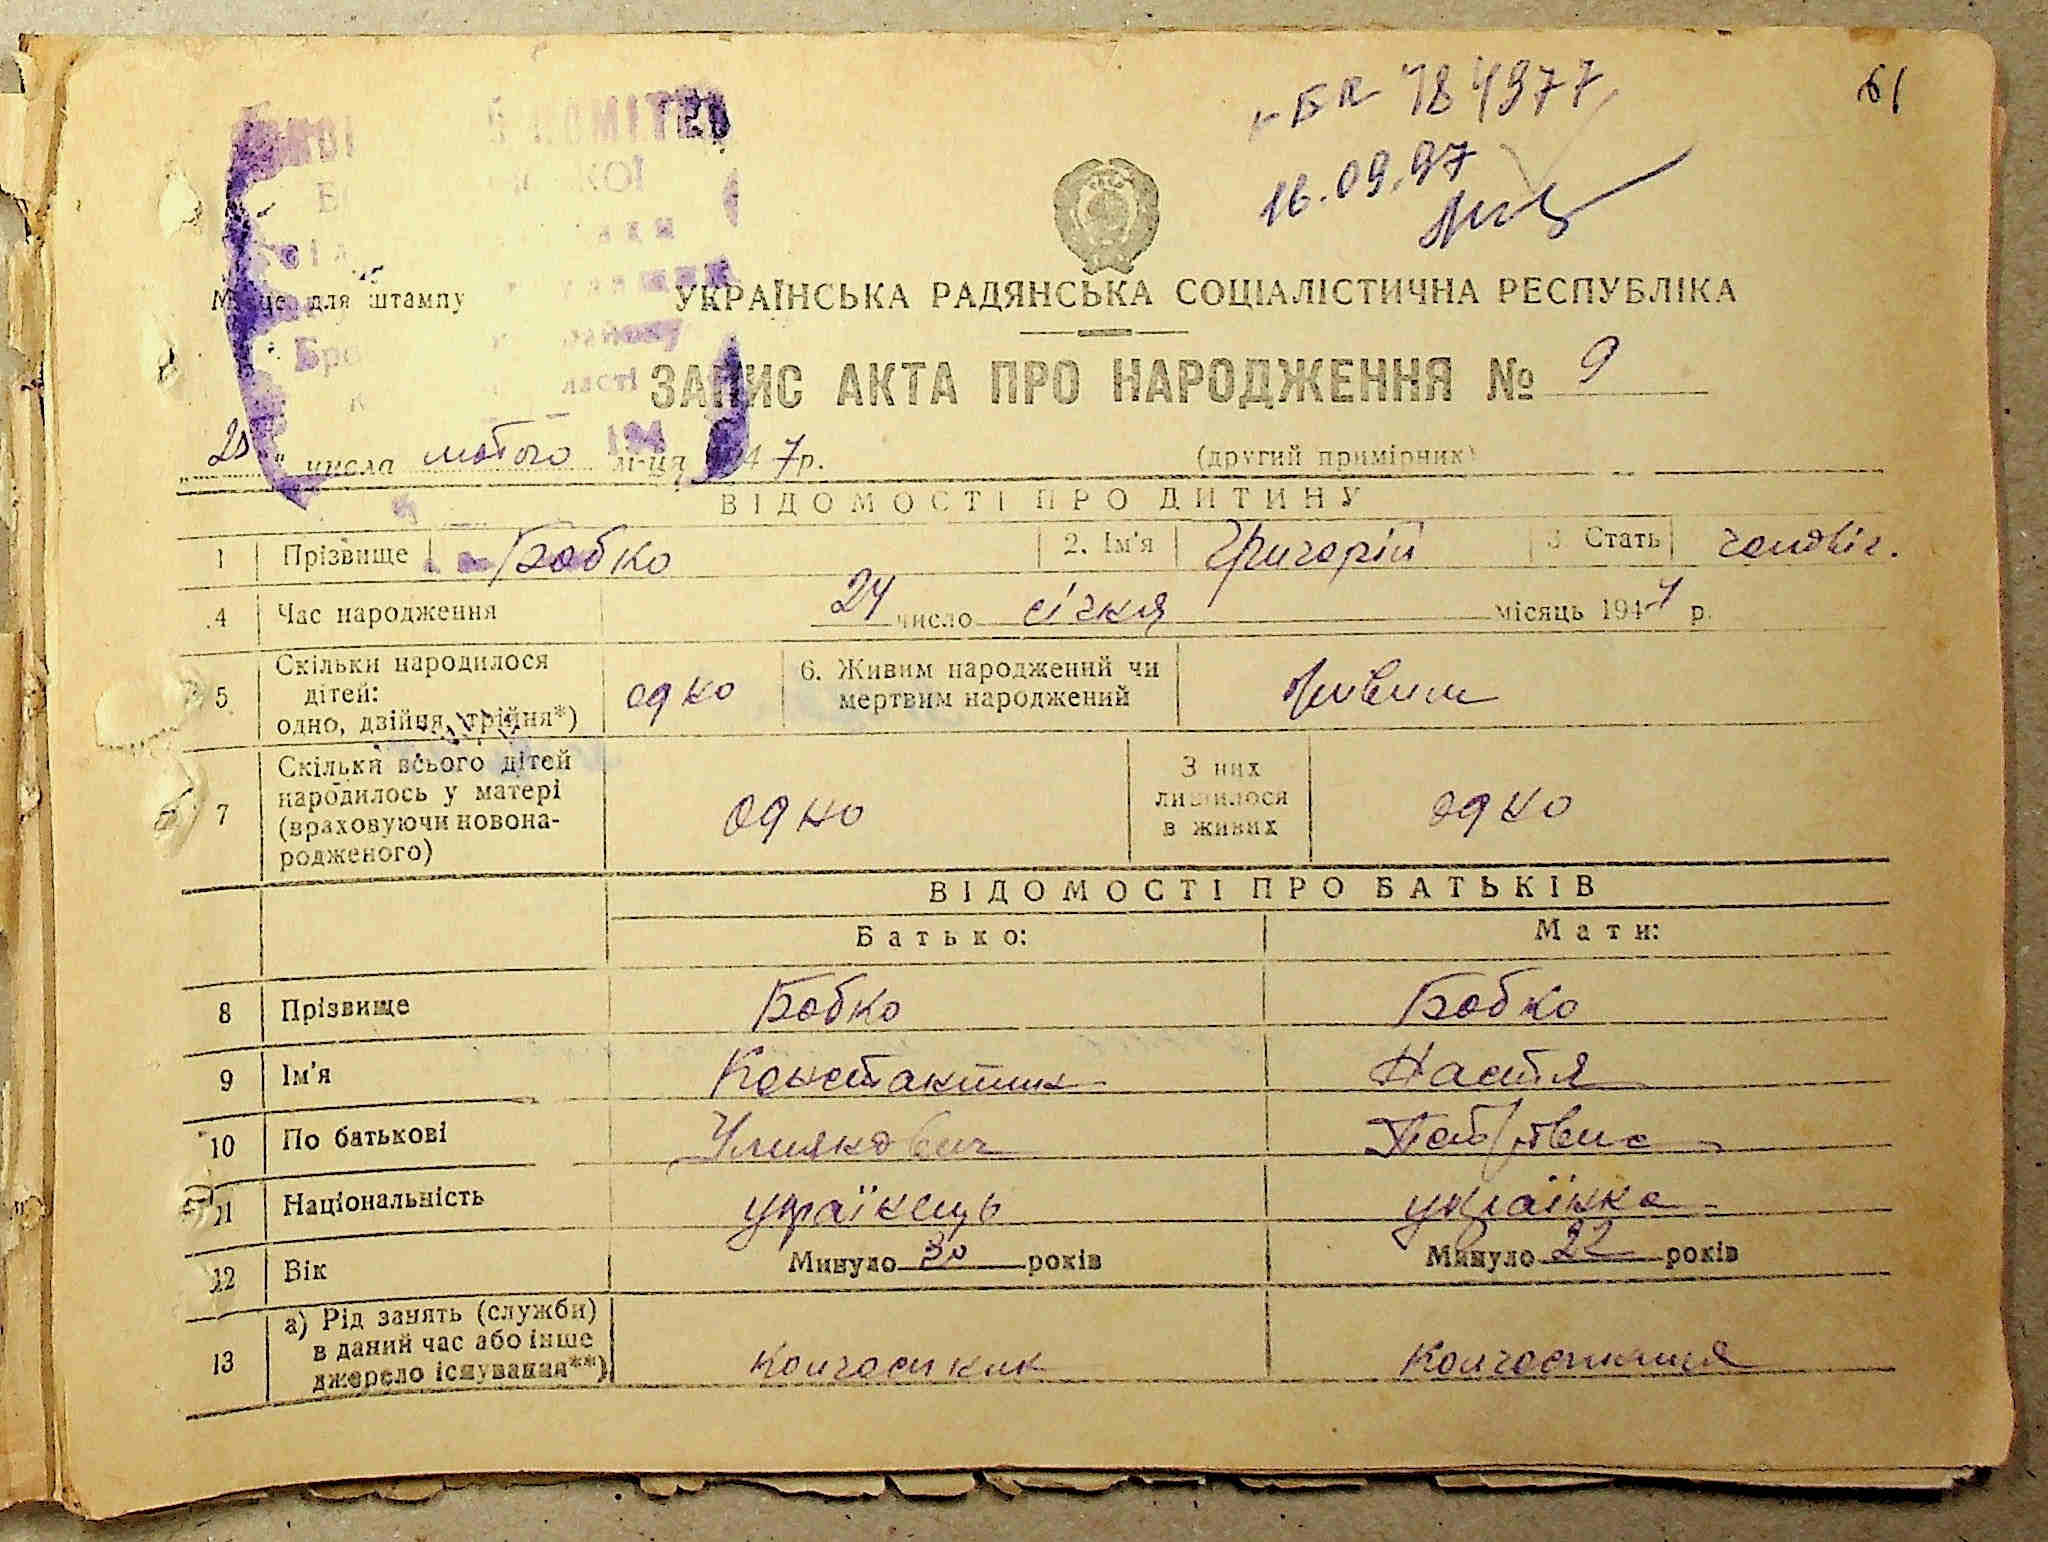 61
БК 784977
16.09.97
КОМІТЕТ
КОЇ
Місце для штампу
УКРАЇНСЬКА РАДЯНСЬКА СОЦІАЛІСТИЧНА РЕСПУБЛІКА
ЗАПИС АКТА ПРО НАРОДЖЕННЯ № 9
„20“ числа лютого м-ця 1947р. (другий примірник)
ВІДОМОСТІ ПРО ДИТИНУ
1 Прізвище Бобко 2. Ім'я Григорій 3 Стать чоловіч.
4 Час народження 24 число січня місяць 1947 р.
5 Скільки народилося дітей: одно, двійня, трійня*) одно 6. Живим народжений чи мертвим народжений Живим
7 Скільки всього дітей народилось у матері (враховуючи новонародженого) одно З них лишилося в живих одно
ВІДОМОСТІ ПРО БАТЬКІВ
Батько: Мати:
8 Прізвище Бобко Бобко
9 Ім'я Константин Настя
10 По батькові
11 Національність українець українка
12 Вік Минуло 30 років Минуло 22 років
13 а) Рід занять (служби) в даний час або інше джерело існування**) колгоспник колгоспниця